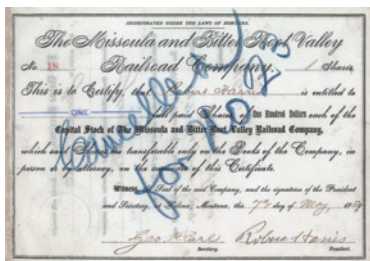 INCORPORATED UNDER THE LAWS OF MONTANA.
The Missoula and Bitter Root Valley
No. 18 Railroad Company. 1 Shares
This is to Certify, that Robert Harris is entitled to
ONE full paid Shares of One Hundred Dollars each of the
Capital Stock of The Missoula and Bitter Root Valley Railroad Company,
which said Shares are transferable only on the Books of the Company, in
person or by attorney, on the surrender of this Certificate.
Witness, the Seal of the said Company, and the signatures of the President
and Secretary, at Helena, Montana, this 7th day of May, 18
Geo H Earl Robert Harris
Secretary. President.
Cancelled
for No 23